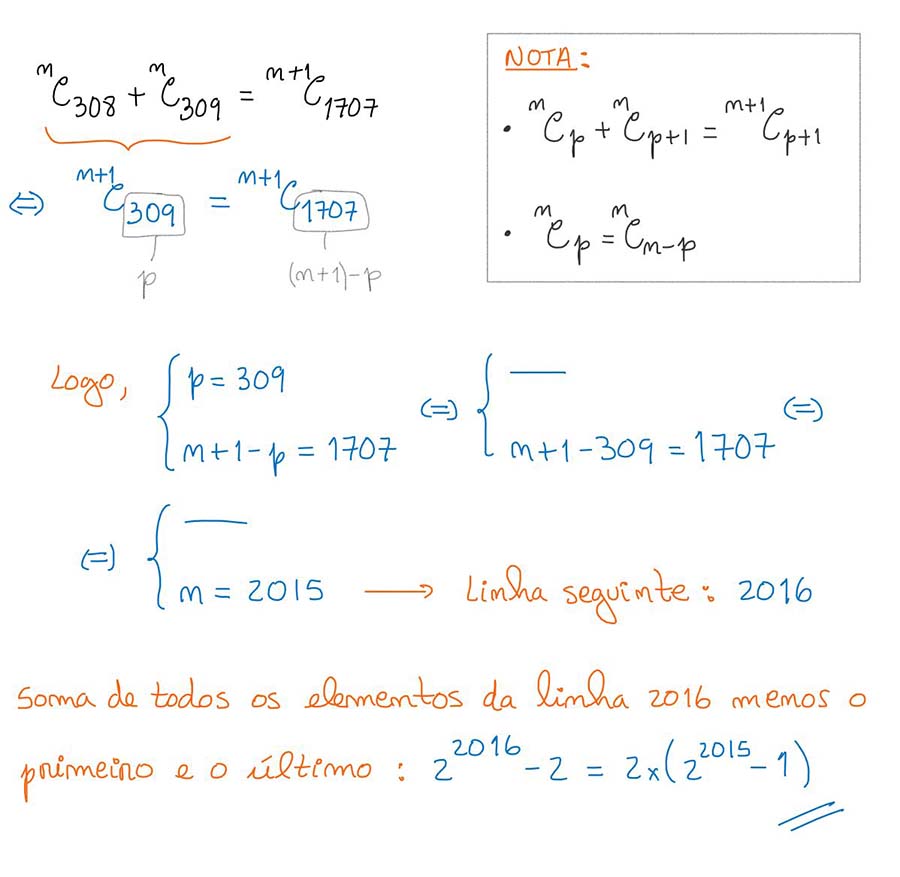 ᵐC₃₀₈ + ᵐC₃₀₉ = ᵐ⁺¹C₁₇₀₇
⇔ ᵐ⁺¹C₃₀₉ = ᵐ⁺¹C₁₇₀₇
p (m+1)-p
NOTA:
• ᵐCₚ + ᵐCₚ₊₁ = ᵐ⁺¹Cₚ₊₁
• ᵐCₚ = ᵐCₘ₋ₚ
Logo, { p = 309 (=) { — (=)
m+1-p = 1707 m+1-309 = 1707
(=) { —
m = 2015 → Linha seguinte: 2016
Soma de todos os elementos da linha 2016 menos o
primeiro e o último: 2²⁰¹⁶ - 2 = 2x(2²⁰¹⁵ - 1)